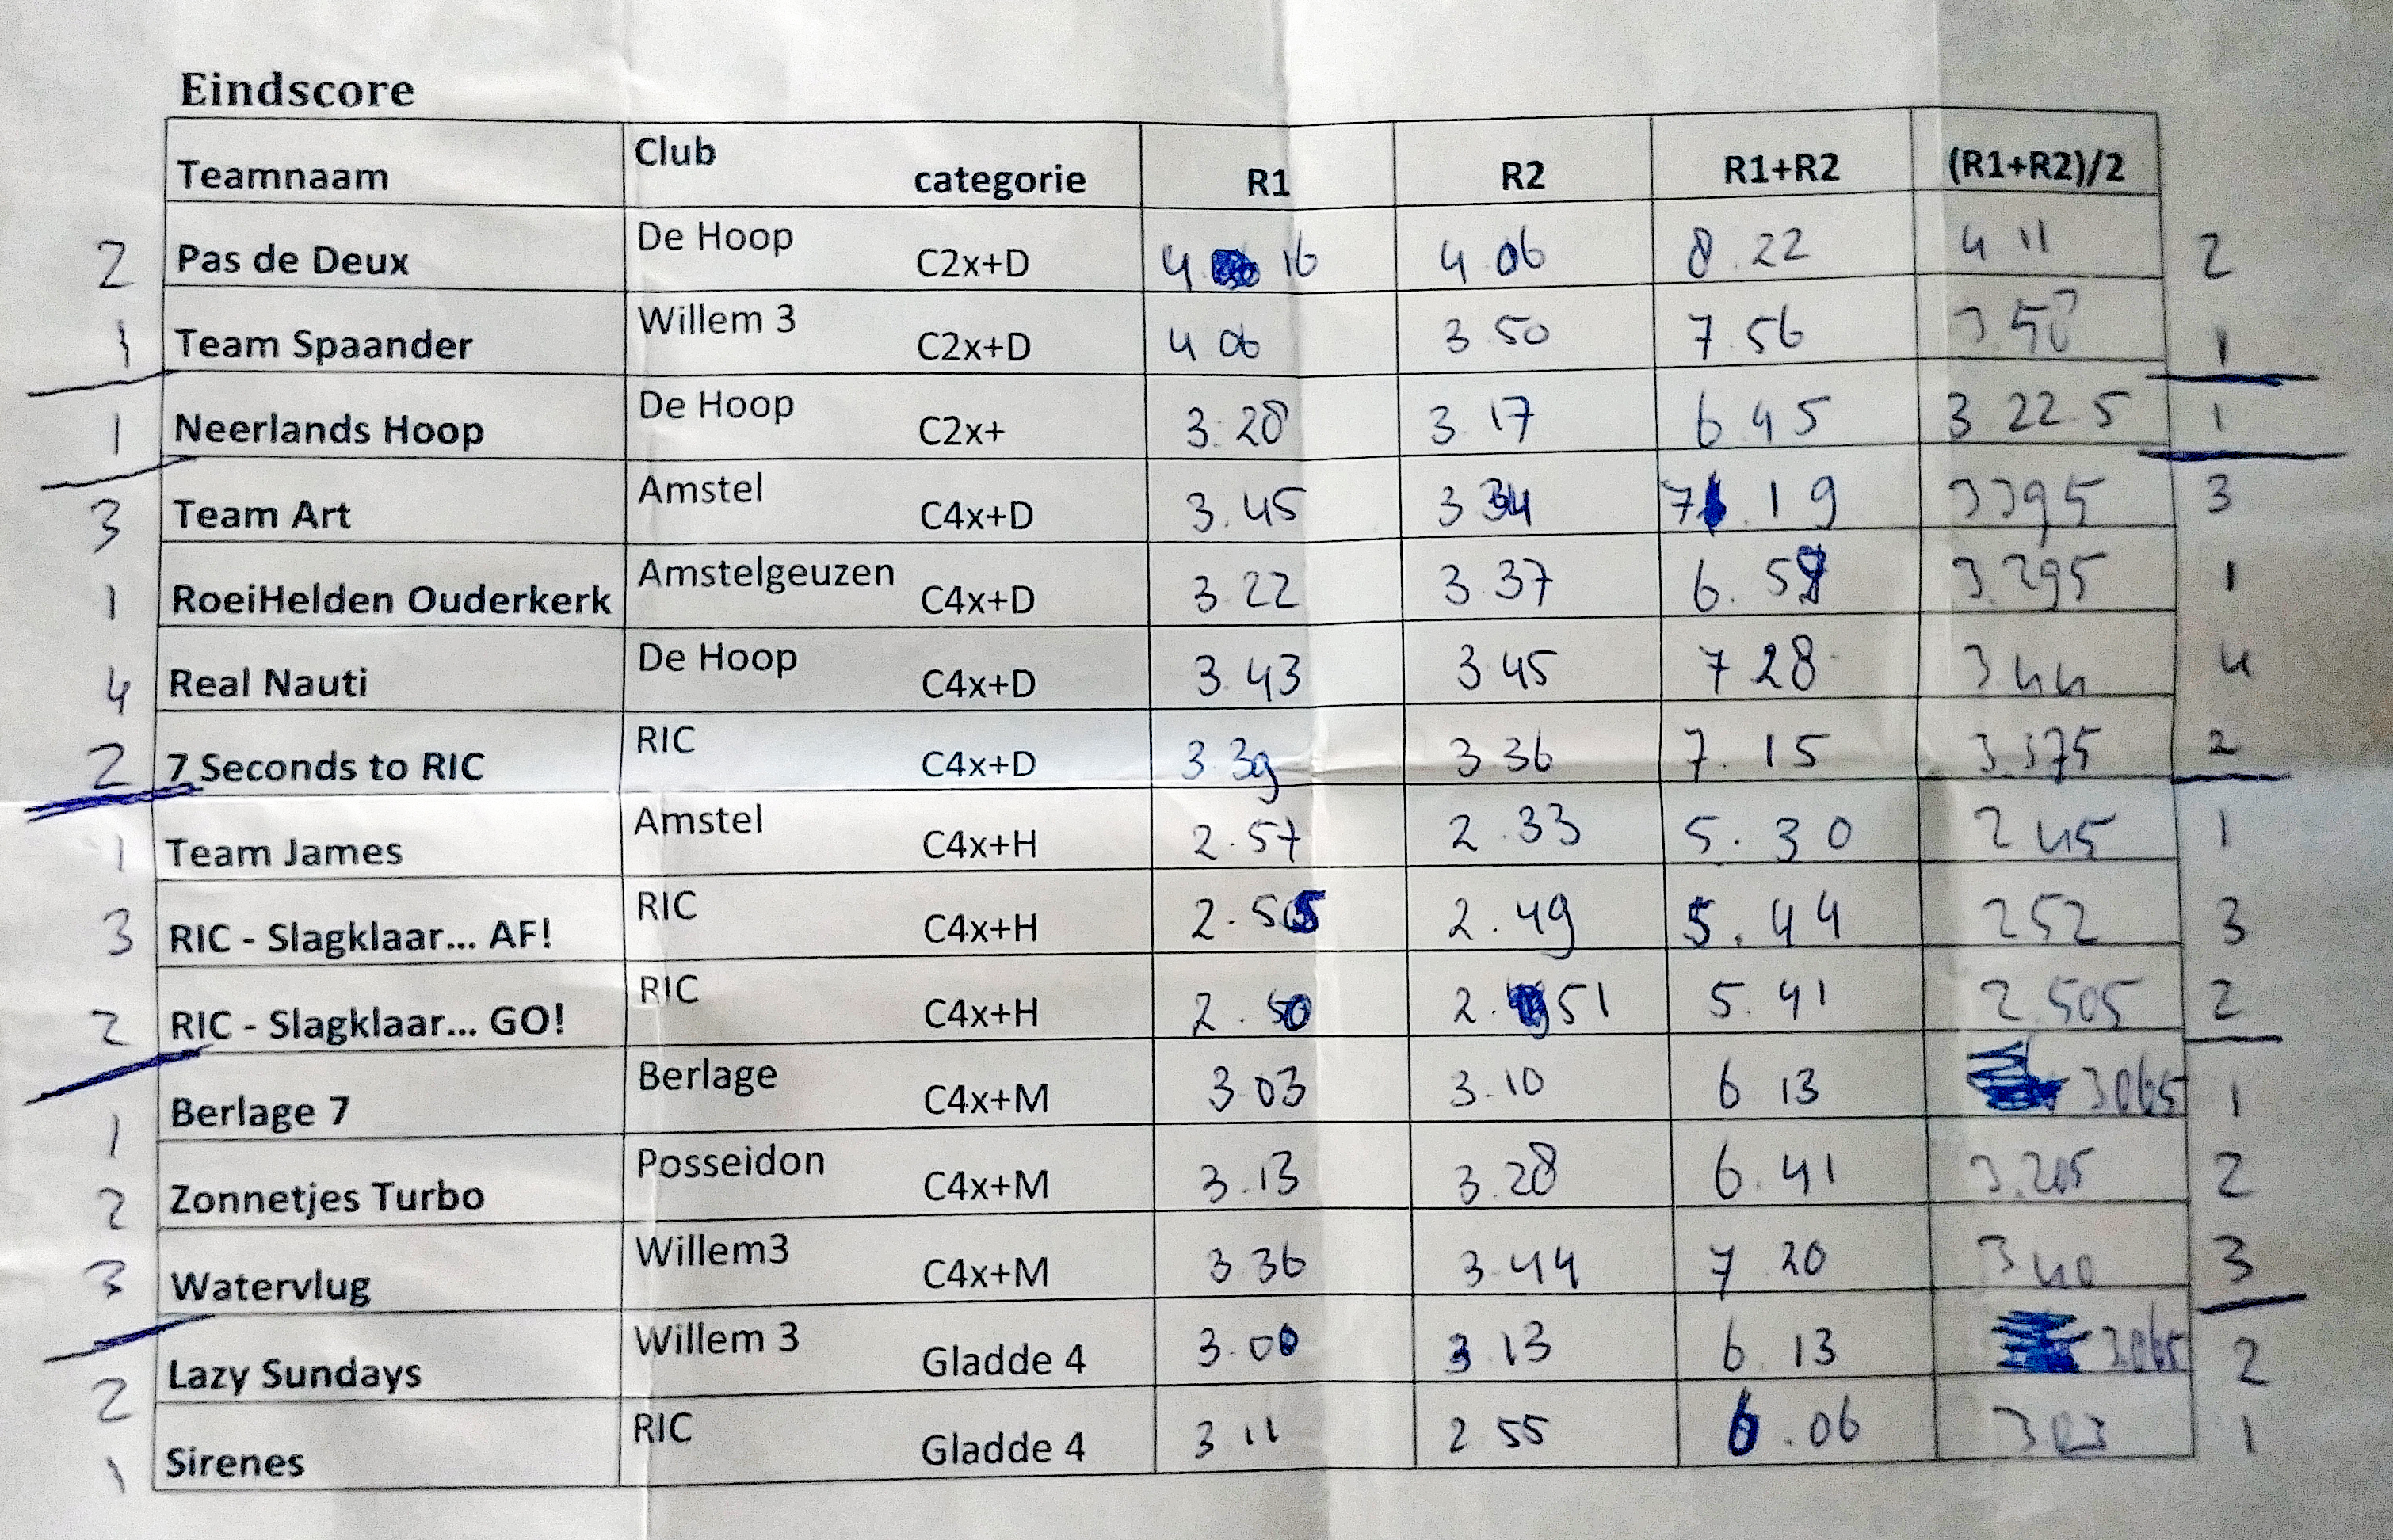 Eindscore
Teamnaam Club categorie R1 R2 R1+R2 (R1+R2)/2
2 Pas de Deux De Hoop C2x+D 4 16 4 06 8.22 4 11 2
1 Team Spaander Willem 3 C2x+D 4 06 3 50 7 56 3 58 1
1 Neerlands Hoop De Hoop C2x+ 3.28 3 17 6 45 3 22.5 1
3 Team Art Amstel C4x+D 3.45 3 34 7.19 3395 3
1 RoeiHelden Ouderkerk Amstelgeuzen C4x+D 3 22 3 37 6.59 3.295 1
4 Real Nauti De Hoop C4x+D 3 43 3 45 7 28 3 44 4
2 7 Seconds to RIC RIC C4x+D 3 39 3 36 7.15 3.375 2
1 Team James Amstel C4x+H 2.57 2.33 5.30 2 45 1
3 RIC - Slagklaar... AF! RIC C4x+H 2.55 2.49 5.44 252 3
2 RIC - Slagklaar... GO! RIC C4x+H 2.50 2.51 5.41 2.505 2
1 Berlage 7 Berlage C4x+M 3 03 3.10 6 13 3065 1
2 Zonnetjes Turbo Posseidon C4x+M 3.13 3.28 6.41 3.205 2
3 Watervlug Willem3 C4x+M 3 36 3.44 7 20 3 40 3
2 Lazy Sundays Willem 3 Gladde 4 3.00 3 13 6 13 3.065 2
1 Sirenes RIC Gladde 4 3 11 2 55 6.06 303 1